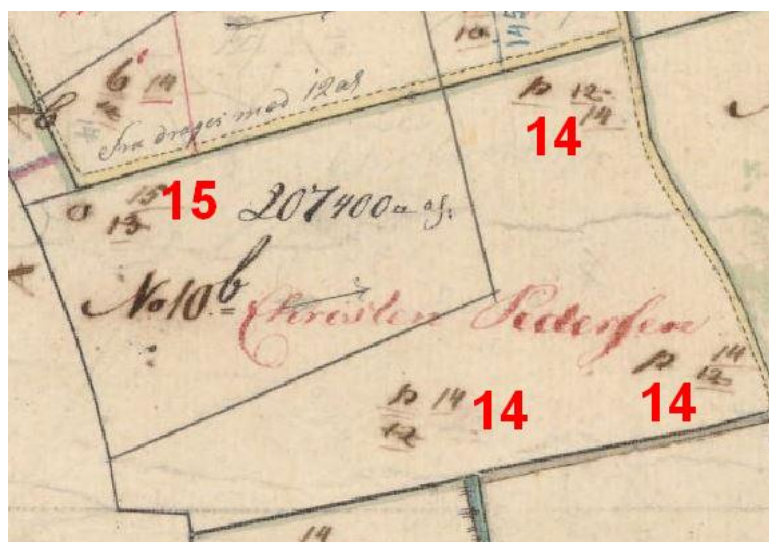 10
145
b
14
14
Fra drages med 12 al
p 12
14
14
15
13
15
a
207400 a al.
No 10 b
Christen Pedersen
p 14
12
14
p 14
12
14
14